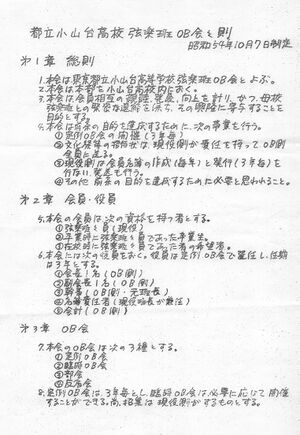 都立小山台高校 弦楽班OB会々則
昭和54年10月7日制定
第1章 総則
1.本会は東京都立小山台高等学校弦楽班OB会とよぶ。
2.本会は本部を小山台高校内におく。
3.本会は会員相互の親睦、発展、向上を計り、かつ、母校
弦楽班との緊密な連絡を保ち、その興隆に寄与することを
目的とする。
4.本会は前条の目的を達成するために、次の事業を行う。
①定例OB会の開催(3年毎)
②文化祭等の招待状は現役側が責任を持ってOB側
全員に送る。
③現役側は会員名簿の作成(毎年)と発行(3年毎)を
行ない発送も行う。
④その他 前条の目的を達成するために必要と思われること。
第2章 会員・役員
5.本会の会員は次の資格を持つ者とする。
①弦楽班々員(現役)
②卒業時に弦楽班々員であった卒業生。
③在校時に弦楽班々員であった者の希望者。
6.本会には次の役員をおく。役員は定例OB会で選任し、任期
は3年とする。
①会長1名(OB側)
②副会長1名(OB側)
③幹事(OB側・元班長)
④名簿責任者(現役班長が兼任)
⑤会計(OB側)
第3章 OB会
7.本会のOB会は次の3種とする。
①定例OB会
②臨時OB会
③部会
④反省会
8.定例OB会は、3年毎とし、臨時OB会は必要に応じて開催
することができる。尚、招集は現役側がするものとする。